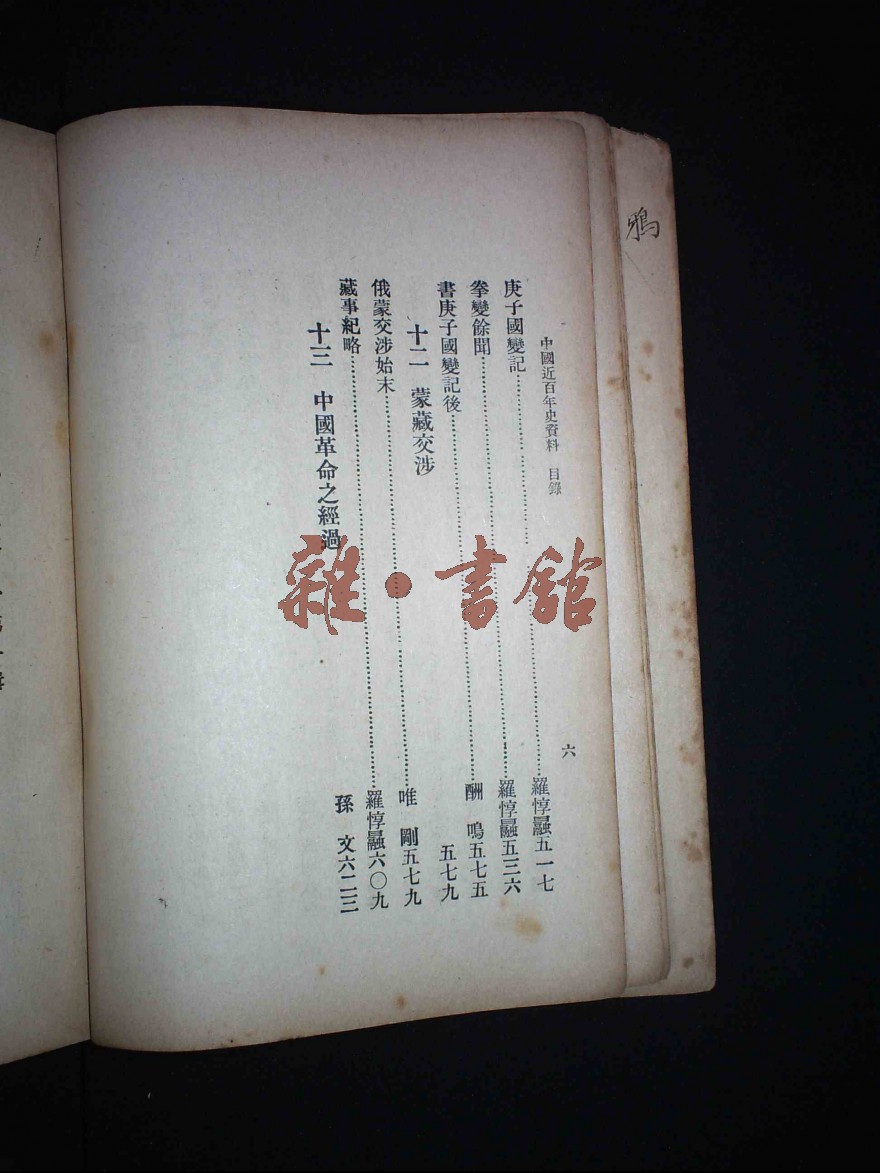 鴉
中國近百年史資料　目錄　六
庚子國變記……羅惇曧五一七
拳變餘聞……羅惇曧五三六
書庚子國變記後……酬　鳴五七五
十二　蒙藏交涉　五七九
俄蒙交涉始末……唯　剛五七九
藏事紀略……羅惇曧六〇九
十三　中國革命之經過　孫　文六二三
雜·書館